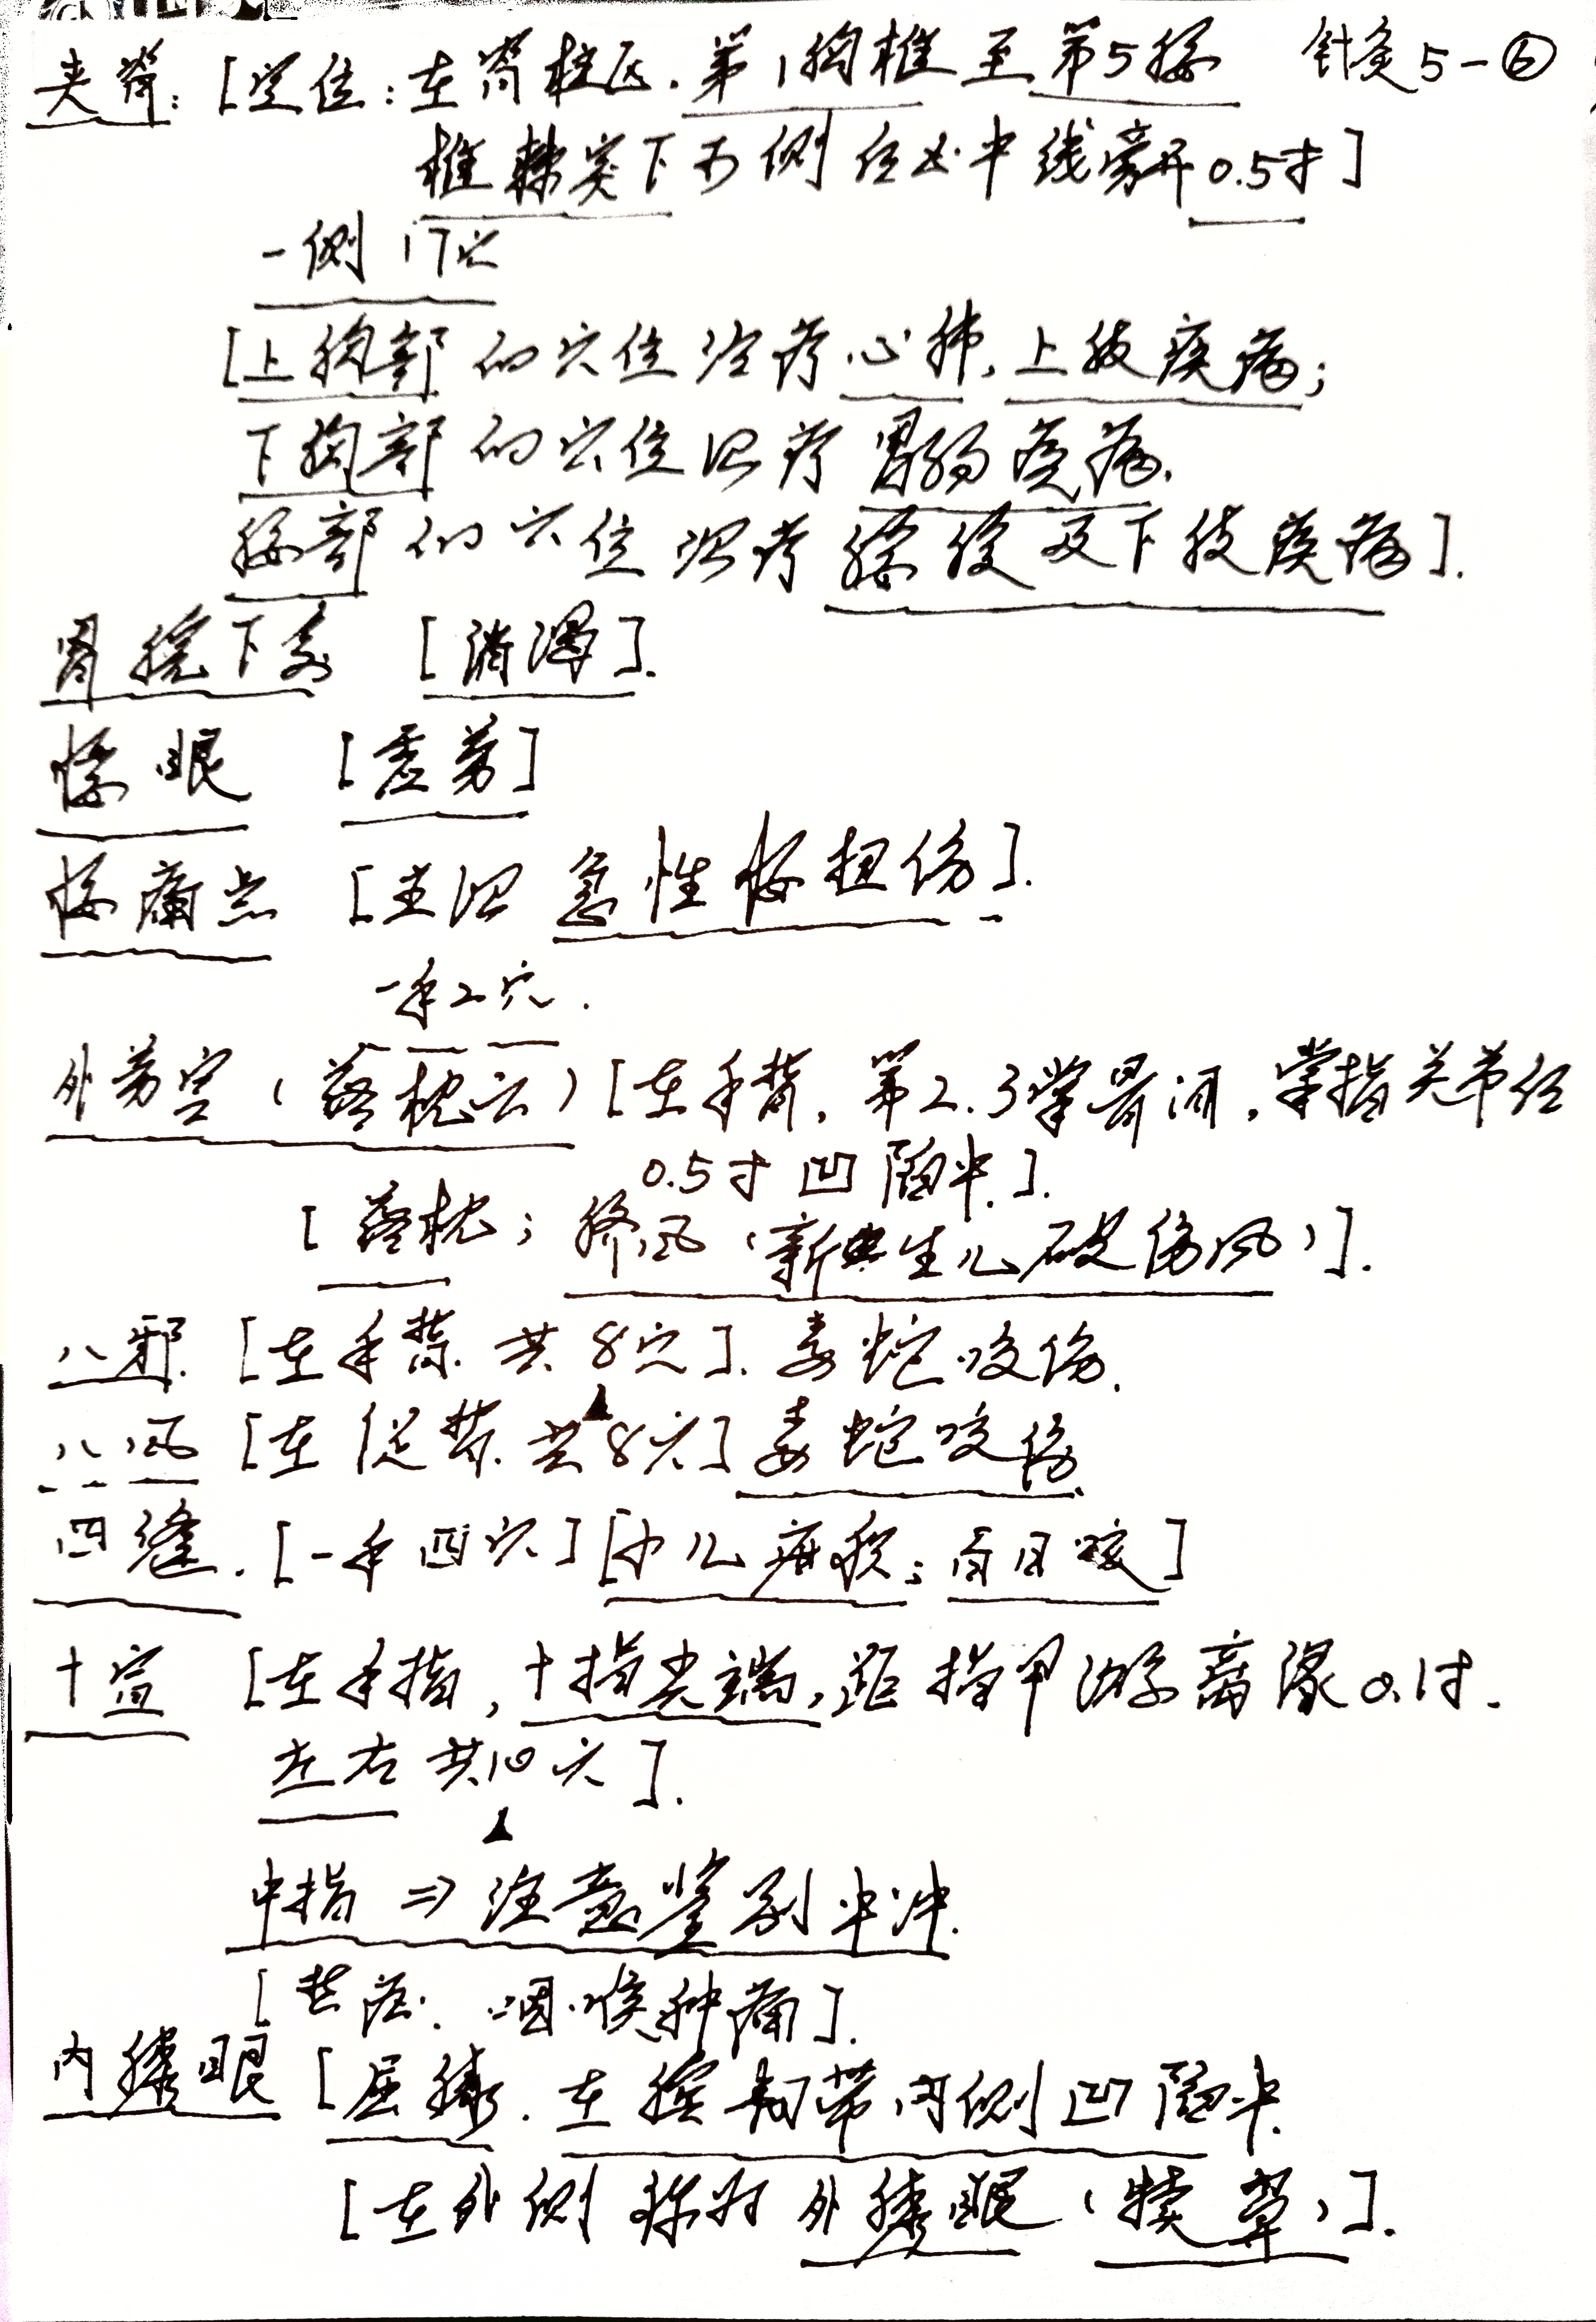 夹脊：[定位：在脊柱区，第1胸椎至第5腰 针灸5-⑥
椎棘突下两侧后正中线旁开0.5寸]
一侧17穴
[上胸部的穴位治疗心肺，上肢疾病；
下胸部的穴位治疗胃肠疾病，
腰部的穴位治疗腰腹及下肢疾病].
胃脘下俞 [消渴].
腰眼 [虚劳]
腰痛点 [主治急性腰扭伤].
一手2穴.
外劳宫（落枕穴）[在手背，第2.3掌骨间，掌指关节后
0.5寸凹陷中.].
[落枕；脐风（新生儿破伤风）].
八邪. [在手背. 共8穴]. 毒蛇咬伤.
八风 [在足背. 共8穴] 毒蛇咬伤.
四缝. [一手四穴] [小儿疳积；百日咳]
十宣 [在手指，十指尖端，距指甲游离缘0.1寸.
左右共10穴].
中指⇒注意鉴别中冲.
[ 咽喉肿痛].
内膝眼 [屈膝. 在髌韧带内侧凹陷中.
[在外侧称为外膝眼（犊鼻）].